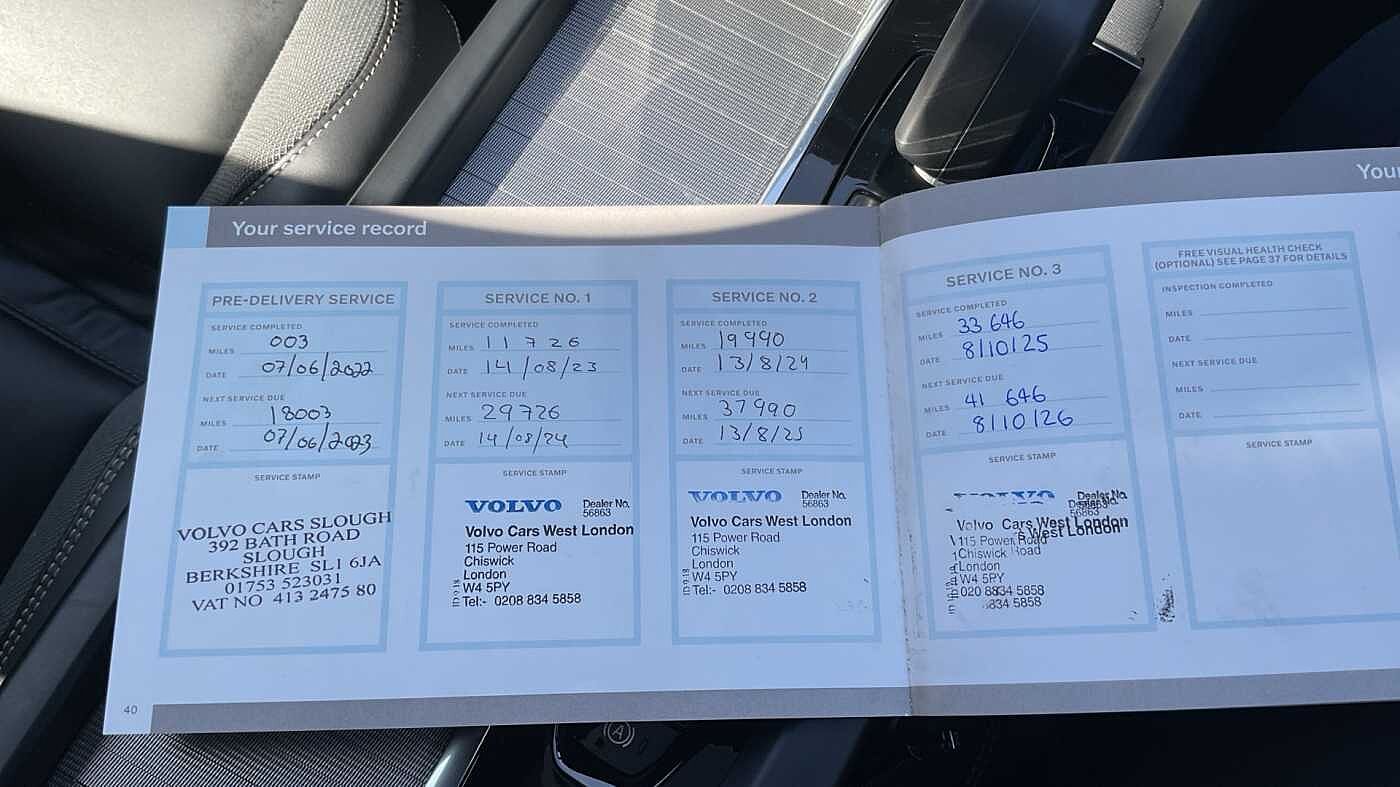 Your service record
PRE-DELIVERY SERVICE
SERVICE COMPLETED
MILES 003
DATE 07/06/2022
NEXT SERVICE DUE
MILES 18003
DATE 07/06/2023
SERVICE STAMP
VOLVO CARS SLOUGH
392 BATH ROAD
SLOUGH
BERKSHIRE SL1 6JA
01753 523031
VAT NO 413 2475 80
SERVICE NO. 1
SERVICE COMPLETED
MILES 11726
DATE 14/08/23
NEXT SERVICE DUE
MILES 29726
DATE 14/08/24
SERVICE STAMP
VOLVO Dealer No.
56863
Volvo Cars West London
115 Power Road
Chiswick
London
W4 5PY
Tel:- 0208 834 5858
SERVICE NO. 2
SERVICE COMPLETED
MILES 19990
DATE 13/8/24
NEXT SERVICE DUE
MILES 37990
DATE 13/8/25
SERVICE STAMP
VOLVO Dealer No.
56863
Volvo Cars West London
115 Power Road
Chiswick
London
W4 5PY
Tel:- 0208 834 5858
40
Your
SERVICE NO. 3
SERVICE COMPLETED
MILES 33 646
DATE 8/10/25
NEXT SERVICE DUE
MILES 41 646
DATE 8/10/26
SERVICE STAMP
VOLVO Dealer No.
56863
Volvo Cars West London
115 Power Road
Chiswick
London
W4 5PY
834 5858
FREE VISUAL HEALTH CHECK
(OPTIONAL) SEE PAGE 37 FOR DETAILS
INSPECTION COMPLETED
MILES
DATE
NEXT SERVICE DUE
MILES
DATE
SERVICE STAMP
A